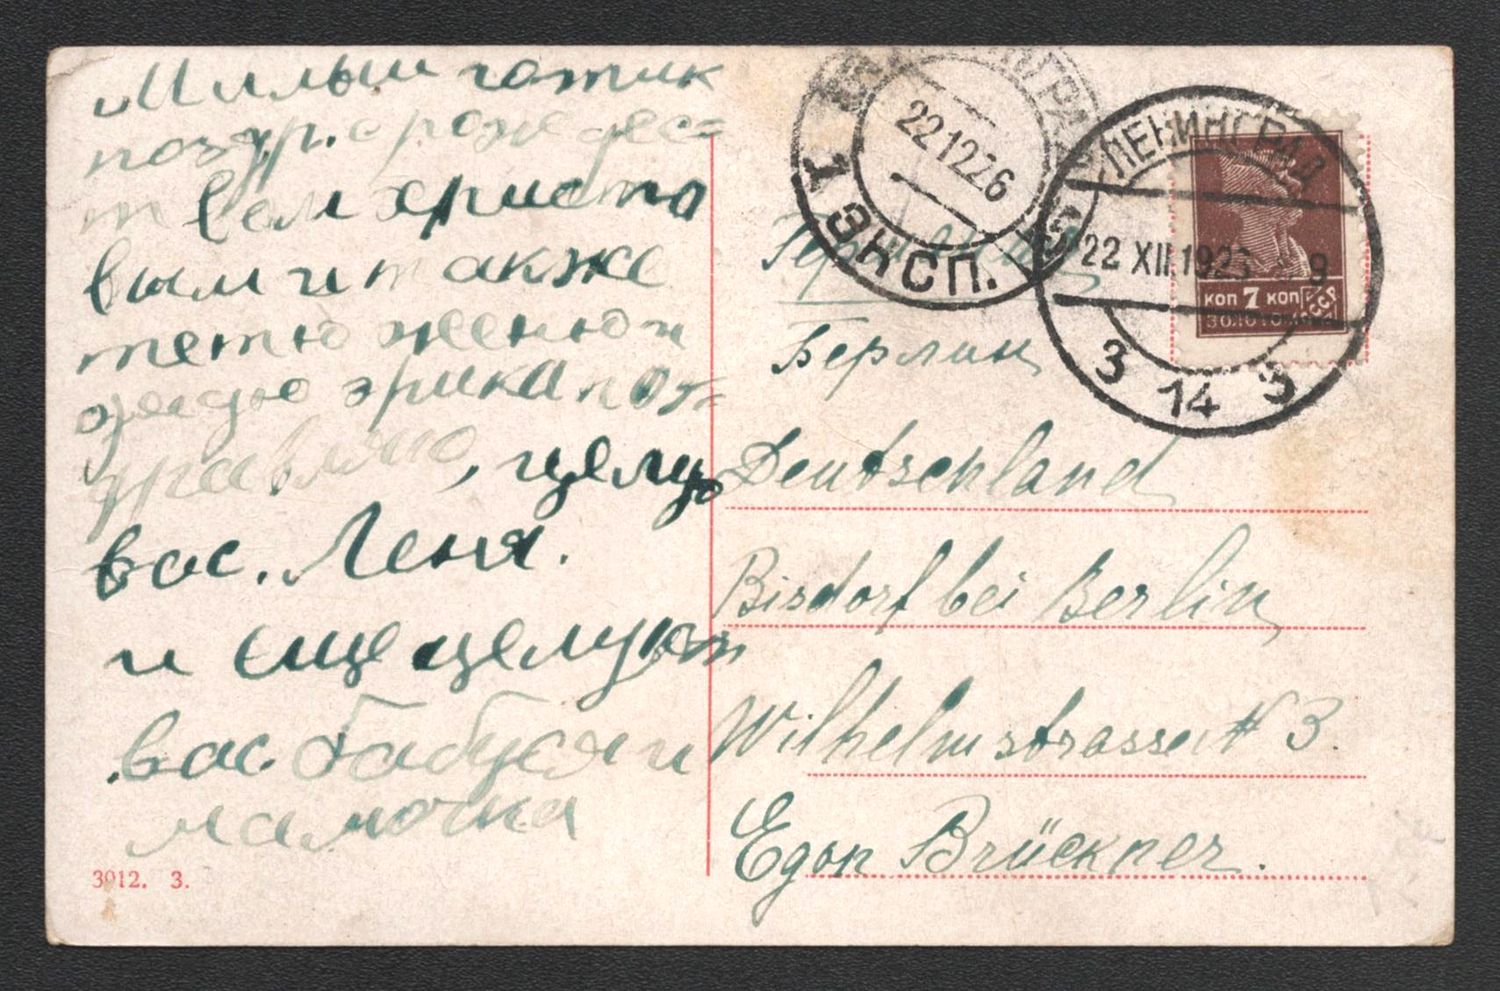 Милый готик
поздр. с рождес=
твом христо
вым и также
тетю женю и
дядю эрика поз=
дравляю, целую
вас. Леня.
и еще целуют
вас. бабуся и
мамочка
3912. 3.
ЛЕНИНГРАД
22 12 26
1 ЭКСП.
ЛЕНИНГРАД
22 XII 1926 9
3 14 3
КОП 7 КОП
СССР
Германия
Берлин
Deutschland
Bisdorf bei Berlin
Wilhelmstrasse N 3.
Egon Brückner.